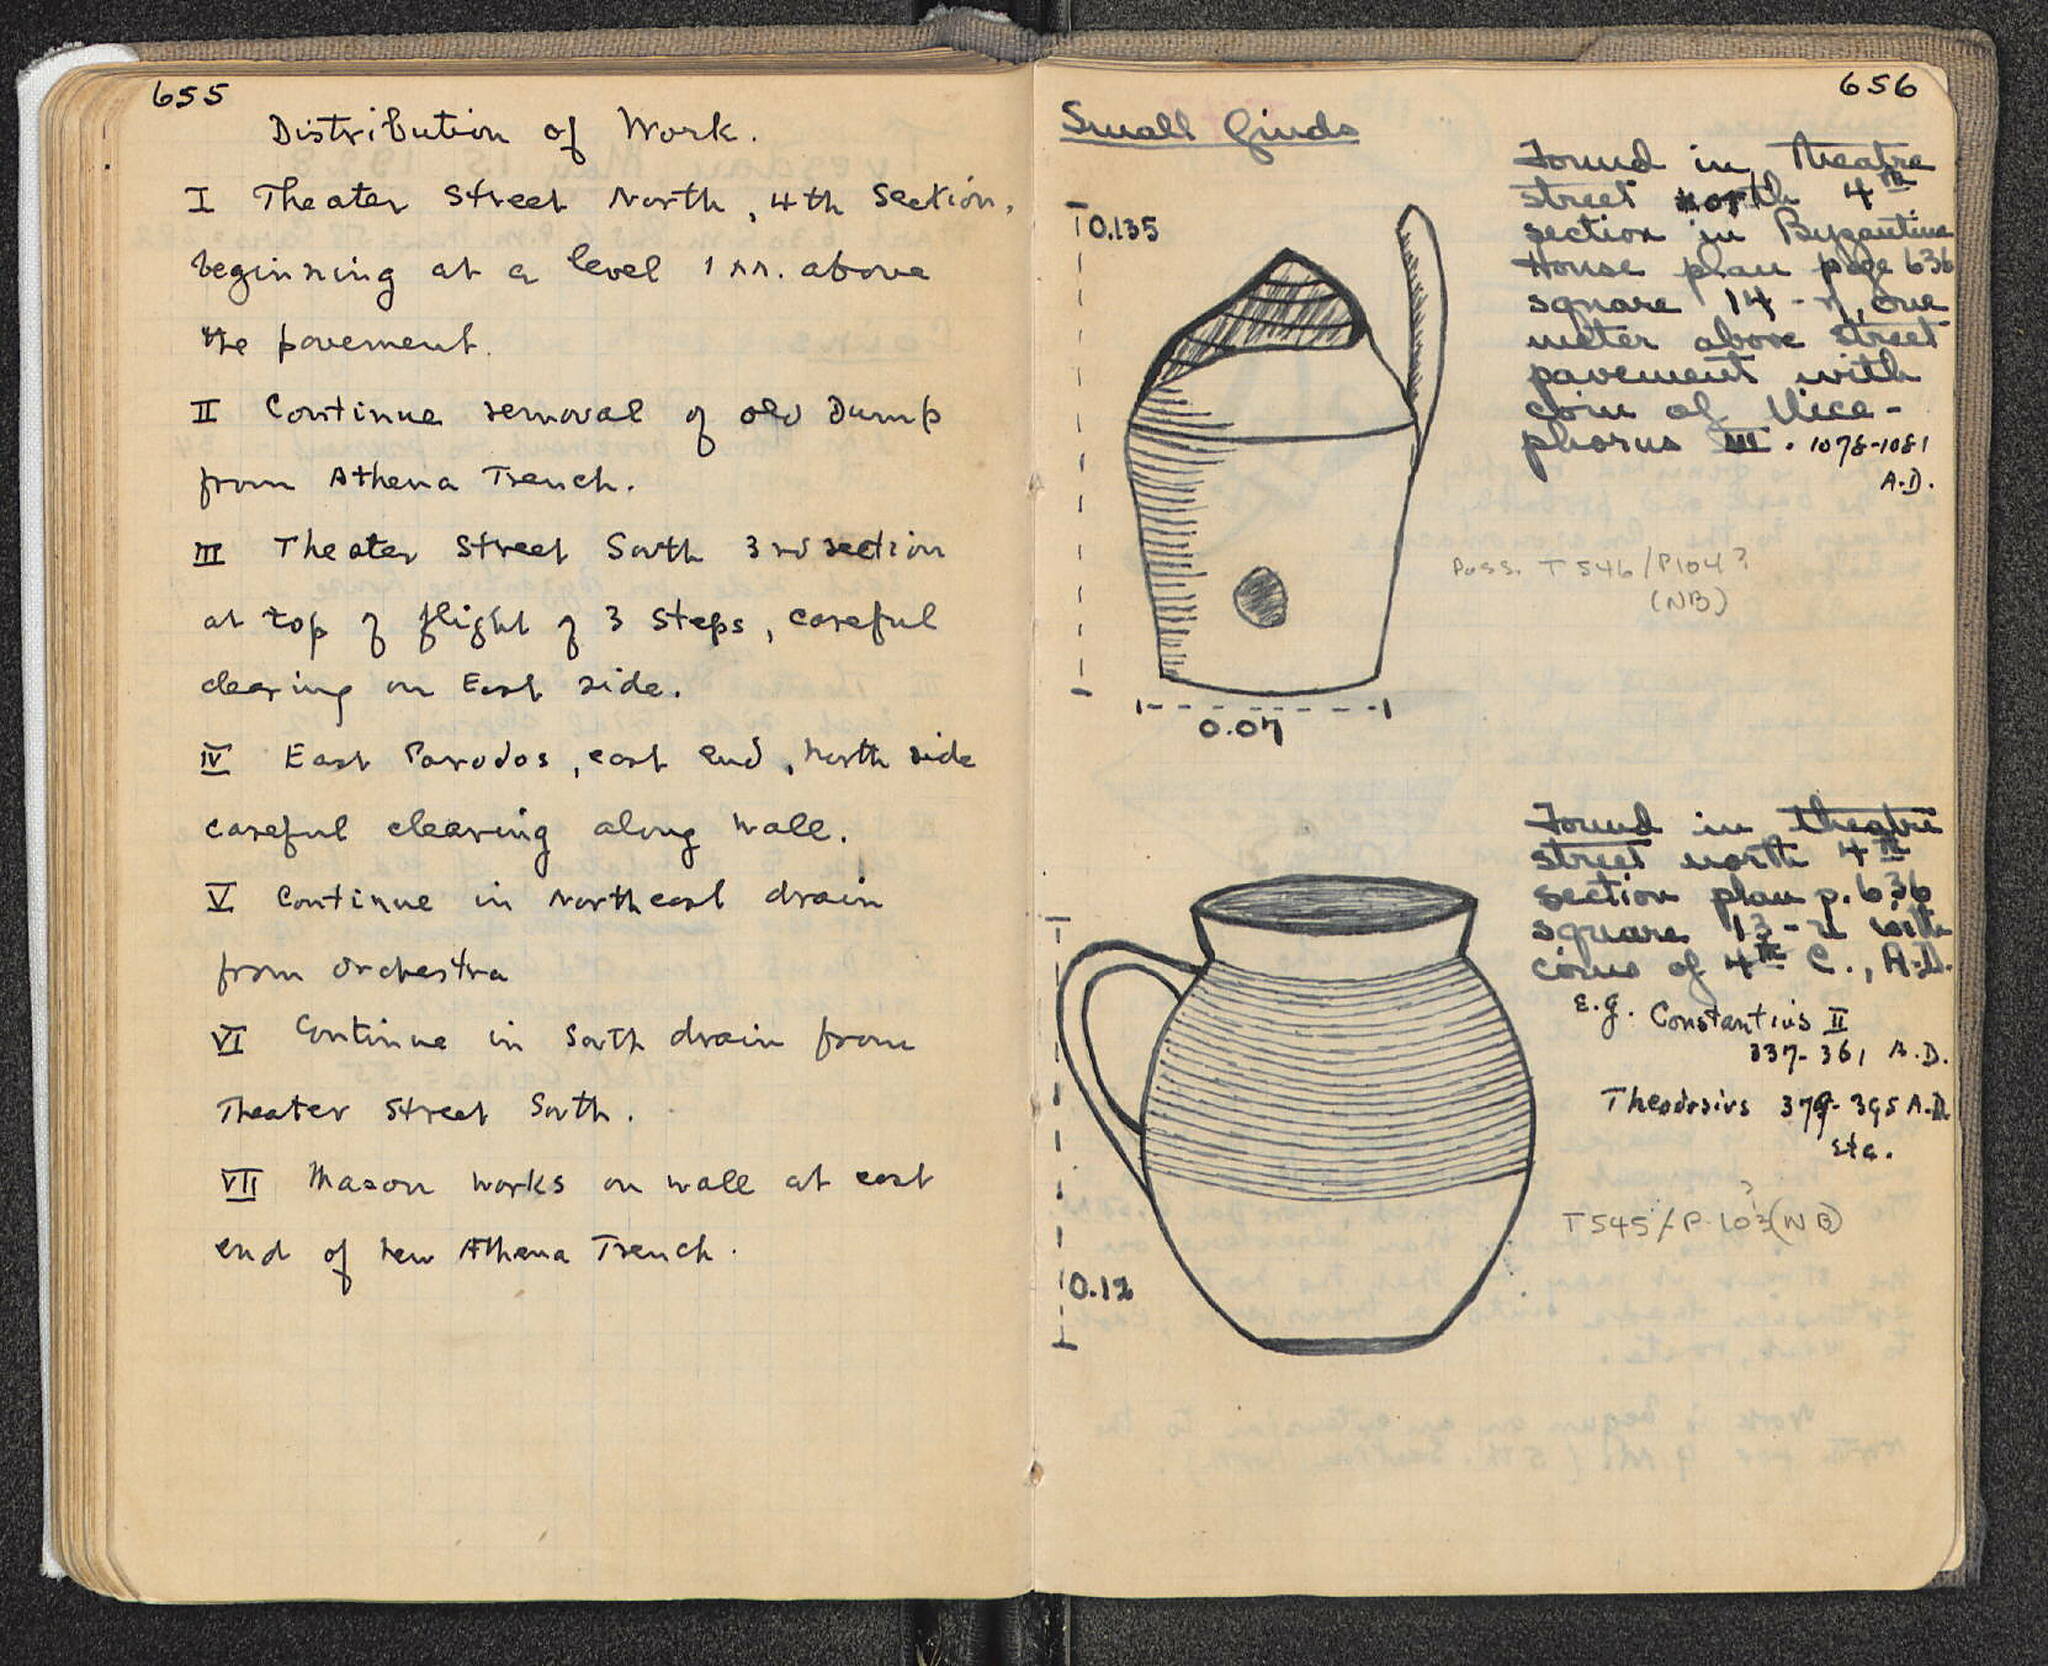 655
Distribution of Work.
I Theater Street North, 4th Section,
beginning at a level 1 m. above
the pavement.
II Continue removal of old Dump
from Athena Trench.
III Theater Street South 3rd section
at top of flight of 3 steps, careful
clearing on East side.
IV East Parodos, east end, North side
careful clearing along wall.
V Continue in Northeast drain
from orchestra
VI Continue in South drain from
Theater Street South.
VII Mason works on wall at east
end of new Athena Trench.
656
Small finds
Found in Theatre
street north 4th
section in Byzantine
House plan page 636
square 14 - η, one
meter above street
pavement with
coin of Nice-
phorus III. 1078-1081
A.D.
0.135
Poss. T 546/P104?
(NB)
0.07
Found in theatre
street north 4th
section plan p. 636
square 13 - η with
coins of 4th C., A.D.
E.g. Constantius II
337-361 A.D.
Theodosius 379-395 A.D.
Etc.
?
T545/P.103(NB)
0.12